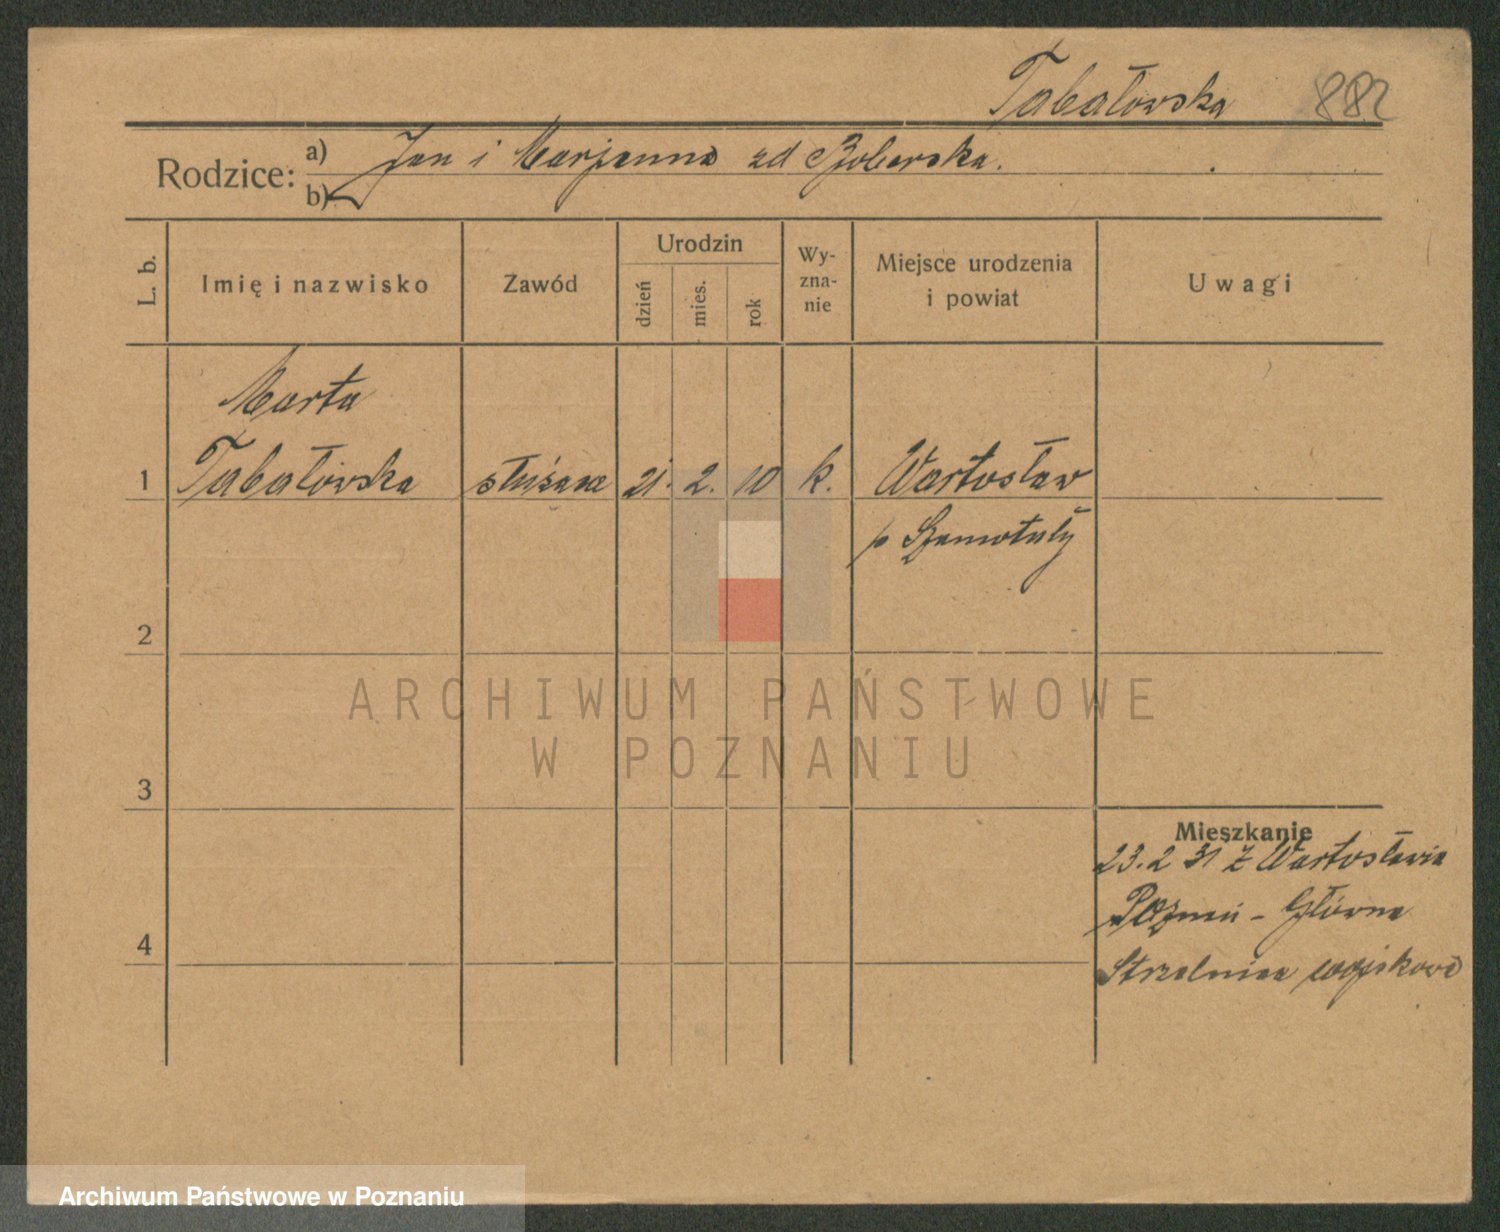 Tabałowska 882
Rodzice: a) Jan i Marjanna zd Boberska.
b)
L. b.
Imię i nazwisko
Zawód
Urodzin
dzień
mies.
rok
Wy-
zna-
nie
Miejsce urodzenia
i powiat
Uwagi
Marta
1 Tabałowska służąca 21. 2. 10 k. Wartosław
p Szamotuły
2
3
4
Mieszkanie
23.2 31 z Wartosławia
Poznań - Główna
Strzelnica wojskowa
ARCHIWUM PAŃSTWOWE
W POZNANIU
Archiwum Państwowe w Poznaniu